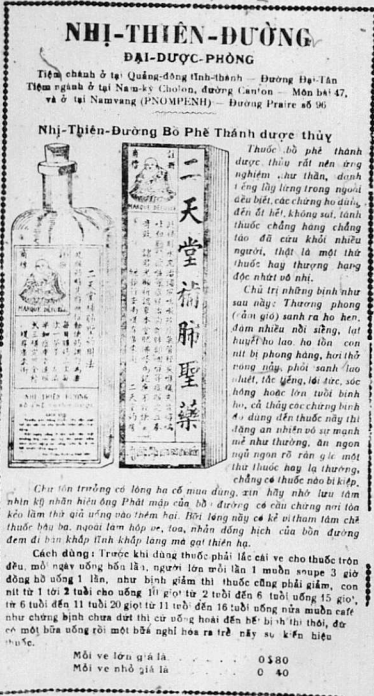 NHỊ-THIÊN-ĐƯỜNG
ĐẠI-DƯỢC-PHÒNG
Tiệm chánh ở tại Quảng-đông tỉnh-thành — Đường Đại-Tân
Tiệm ngánh ở tại Nam-kỳ Cholon, đường Canton — Môn bài 47,
và ở tại Namvang (PNOMPENH) — Đường Praire số 96
Nhị-Thiên-Đường Bổ Phế Thánh dược thủy
二天堂補肺聖藥
MARQUE DÉPOSÉE
NHỊ THIÊN ĐƯỜNG
Thuốc bổ phế thánh
dược thủy rất nên ứng
nghiệm như thần, danh
tiếng lẫy lừng trong ngoài
đều biết, các chứng ho dùng
đến ắt hết, không sai, tánh
thuốc chẳng hàng chẳng
táo đã cứu khỏi nhiều
người, thật là một thứ
thuốc hay thượng hạng
độc nhứt vô nhị.
Chủ trị những bịnh như
sau nầy: Thương phong
(cảm gió) sanh ra ho hen,
đàm nhiều nổi siễng, lạt
huyết ho lao, ho tổn con
nít bị phong hàng, hơi thở
vóng nảy, phổi sanh lao
nhiệt, tắc tiếng, lói tức, sóc
hông hoặc lớn tuổi bịnh
ho, cả thảy các chứng bịnh
ấy dùng đến thuốc nầy thì
đặng an nhiên vô sự mạnh
mẽ như thường, ăn ngon
ngủ ngon rõ ràng là một
thứ thuốc hay lạ thường,
chẳng có thuốc nào bì kiệp.
Chư tôn trưởng có lòng hạ cố mua dùng, xin hãy nhớ lưu tâm
nhìn kỹ nhãn hiệu ông Phật mập của bổn đường có cầu chứng nơi tòa
kẻo lầm thứ giả uống vào thêm hại. Bởi lóng nầy có kẻ vì tham tâm chế
thuốc bậy bạ, ngoài làm hộp ve, toa, nhãn đồng hịch của bổn đường
đem đi bán khắp tỉnh khắp làng mà gạt thiên hạ.
Cách dùng: Trước khi dùng thuốc phải lắc cái ve cho thuốc trộn
đều, mỗi ngày uống bốn lần, người lớn mỗi lần 1 muỗn soupe 3 giờ
đồng hồ uống 1 lần, như bịnh giảm thì thuốc cũng phải giảm, con
nít từ 1 tới 2 tuổi cho uống 10 giọt từ 2 tuổi đến 6 tuổi uống 15 giọt,
từ 6 tuổi đến 11 tuổi 20 giọt từ 11 tuổi đến 16 tuổi uống nửa muỗn café
như chứng bịnh chưa dứt thì cứ uống hoài đến hết bịnh thì thôi, đừng
có một bữa uống rồi một bữa nghỉ hóa ra trễ nảy sự kiến hiệu
thuốc.
Mỗi ve lớn giá là. 0$80
Mỗi ve nhỏ giá là 0 40